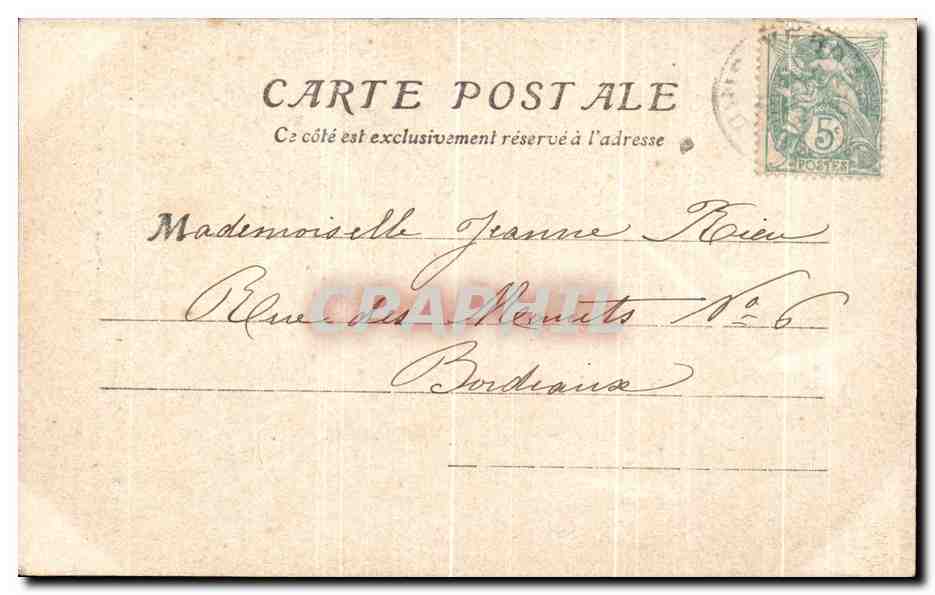 CARTE POSTALE
Ce côté est exclusivement réservé à l'adresse
5c
POSTES
Mademoiselle Jeanne Rieu
Rue des Menuts No 6
Bordeaux
CPAPHIL